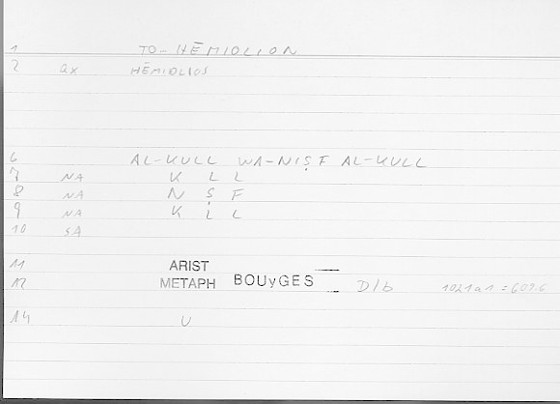 1 TO-HĒMIOLION
2 ax HĒMIOLIOS
6 AL-KULL WA-NIṢF AL-KULL
7 NA K L L
8 NA N Ṣ F
9 NA K L L
10 SA
11 ARIST
12 METAPH BOUyGES D/b 1021a1 = 609.6
14 U